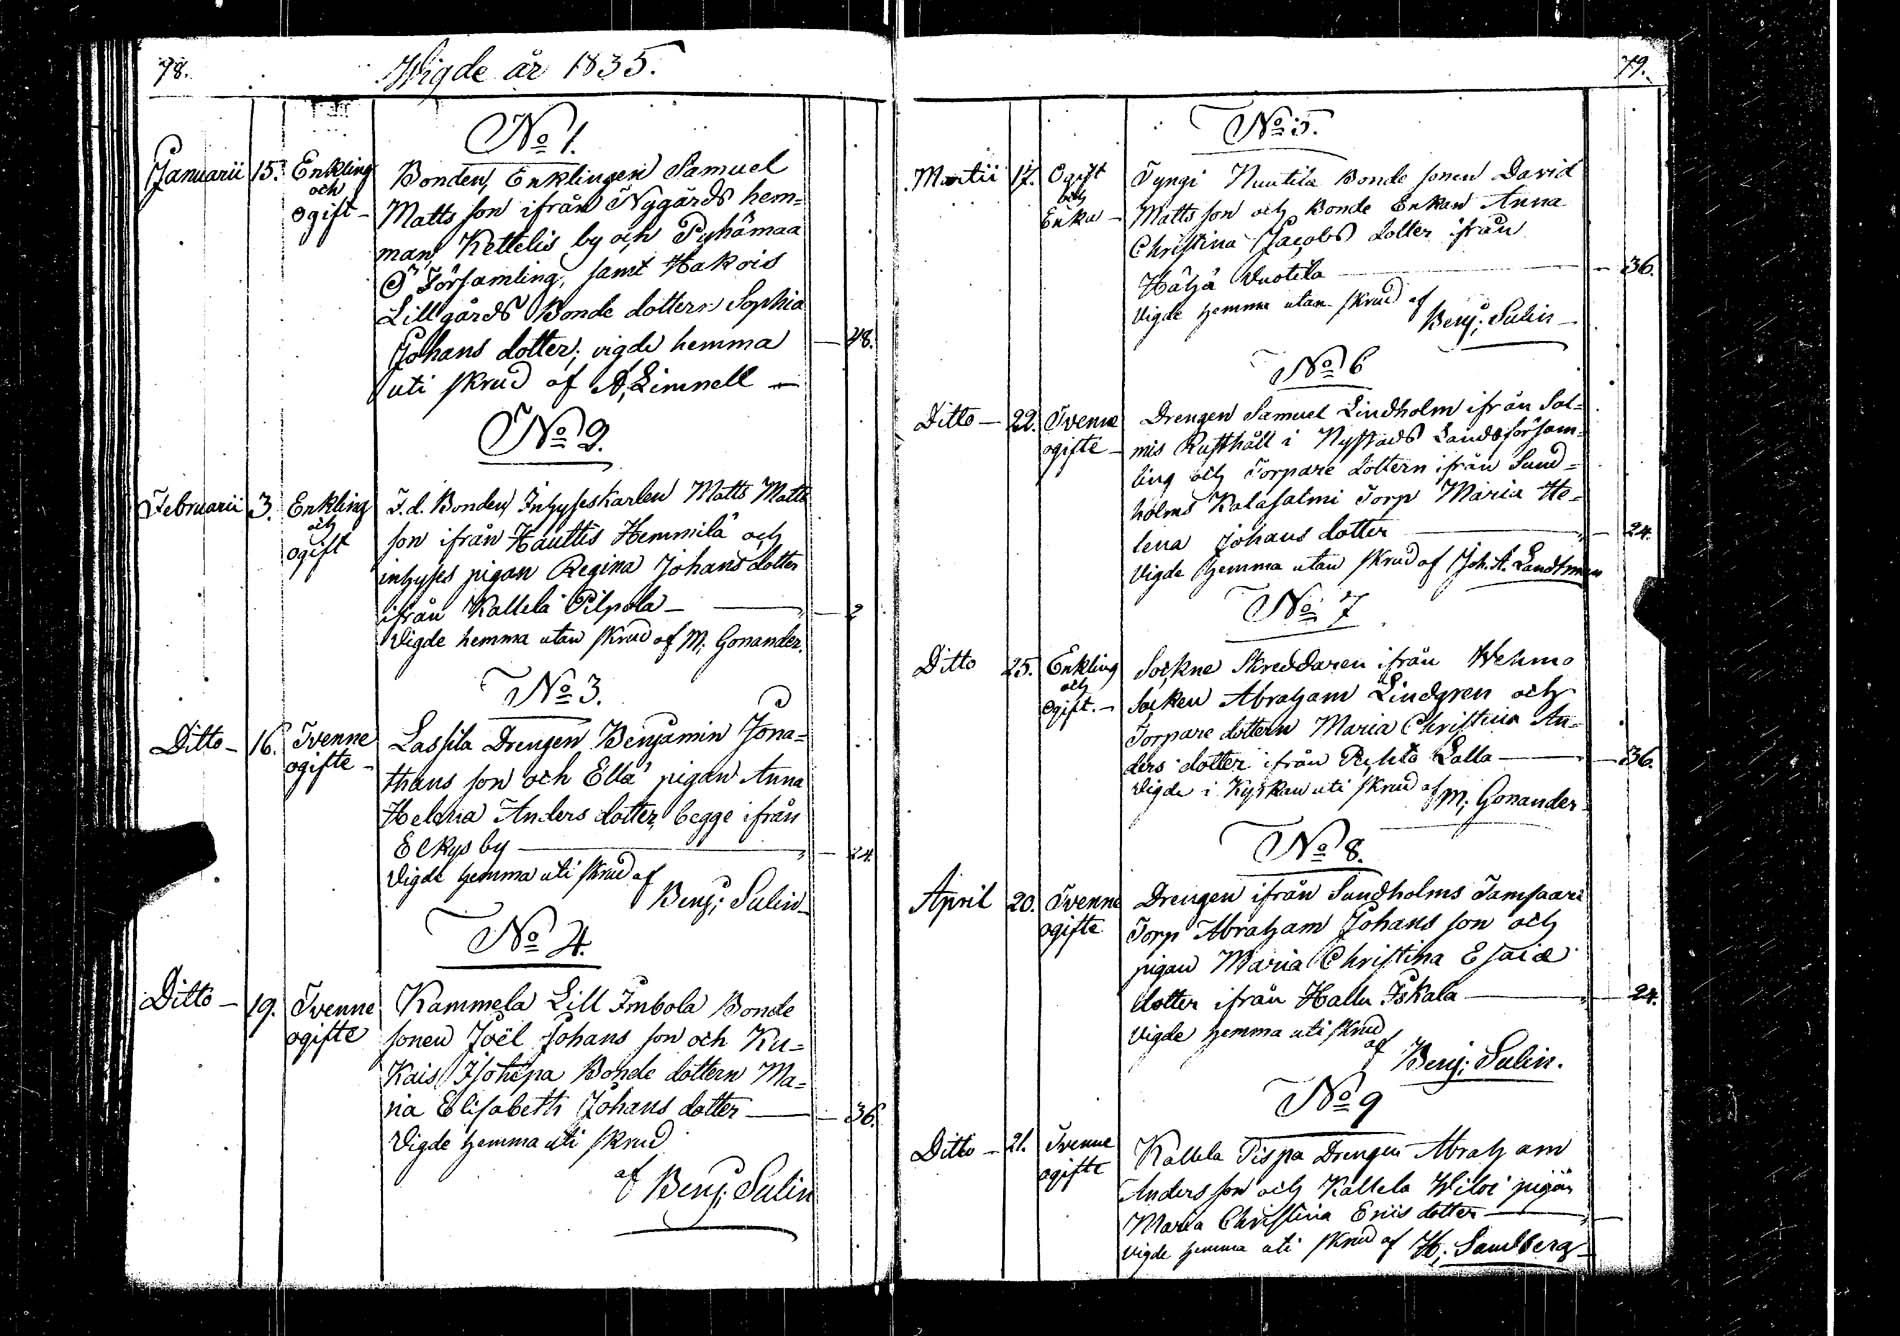 78.
Wigde år 1835.
No 1.
Januarii 15. Enkling och ogift -
Bonden, Enklingen Samuel
Matts son ifrån Nygårds hem=
man Kettelis by och Pyhämaa
Ö Församling, samt Hakois
Lillgårds Bonde dottern Sophia
Johans dotter; vigde hemma — 48.
uti skrud af A. Limnell —
No 2.
Februarii 3. Enkling och ogift
F. d. Bonden, Inhyseskarlen Matts Matts
son ifrån Hauttis Hemmilä och
inhyses pigan Regina Johans dotter
ifrån Kallela Pilpola — 2
Vigde hemma utan skrud af M. Gonander.
No 3.
Ditto - 16. Tvenne ogifte -
Lassila Drengen Benjamin Jona=
thans son och Ella pigan Anna
Helena Anders dotter, begge ifrån
Elkys by — 24.
Vigde hemma uti skrud af
Benj; Sulin
No 4.
Ditto — 19. Tvenne ogifte
Kammela Lill Imbola Bonde
sonen Joël Johans son och Ku=
kais Isohepa Bonde dottern Ma=
ria Elisabeth Johans dotter — 36.
Vigde hemma uti skrud
af Benj; Sulin
79.
No 5.
Martii 17. Ogift och Enka -
Tyngi Nuutila Bonde sonen David
Matts son och Bonde Enkan Anna
Christina Jacobs dotter ifrån
Häljä Vuotila — 36.
Vigde hemma utan skrud af
Benj; Sulin —
No 6
Ditto — 22. Tvenne ogifte —
Drengen Samuel Lindholm ifrån Sal=
mis Rusthåll i Nystads Landsförsam=
ling och Torpare dottern ifrån Sund=
holms Kalasalmi Torp Maria He=
lena Johans dotter — 24.
Vigde hemma utan skrud af Joh. A. Landtman
No 7
Ditto 25. Enkling och ogift. —
Sockne Skreddaren ifrån Wehmo
Socken Abraham Lindgren och
Torpare dottern Maria Christina An=
ders dotter ifrån Ryhtö Lalla — 36.
Vigde i Kyrkan uti skrud af M; Gonander
No 8.
April 20. Tvenne ogifte
Drengen ifrån Sundholms Tamsaari
Torp Abraham Johans son och
pigan Maria Christina Esaiæ
dotter ifrån Hallu Iskala — 24.
Vigde hemma uti skrud
af Benj; Sulin.
No 9
Ditto — 21. Tvenne ogifte
Kallela Pispa Drengen Abraham
Anders son och Kallela Wiloi pigan
Maria Christina Eriis dotter —
Vigde hemma uti skrud af H; Sandberg —